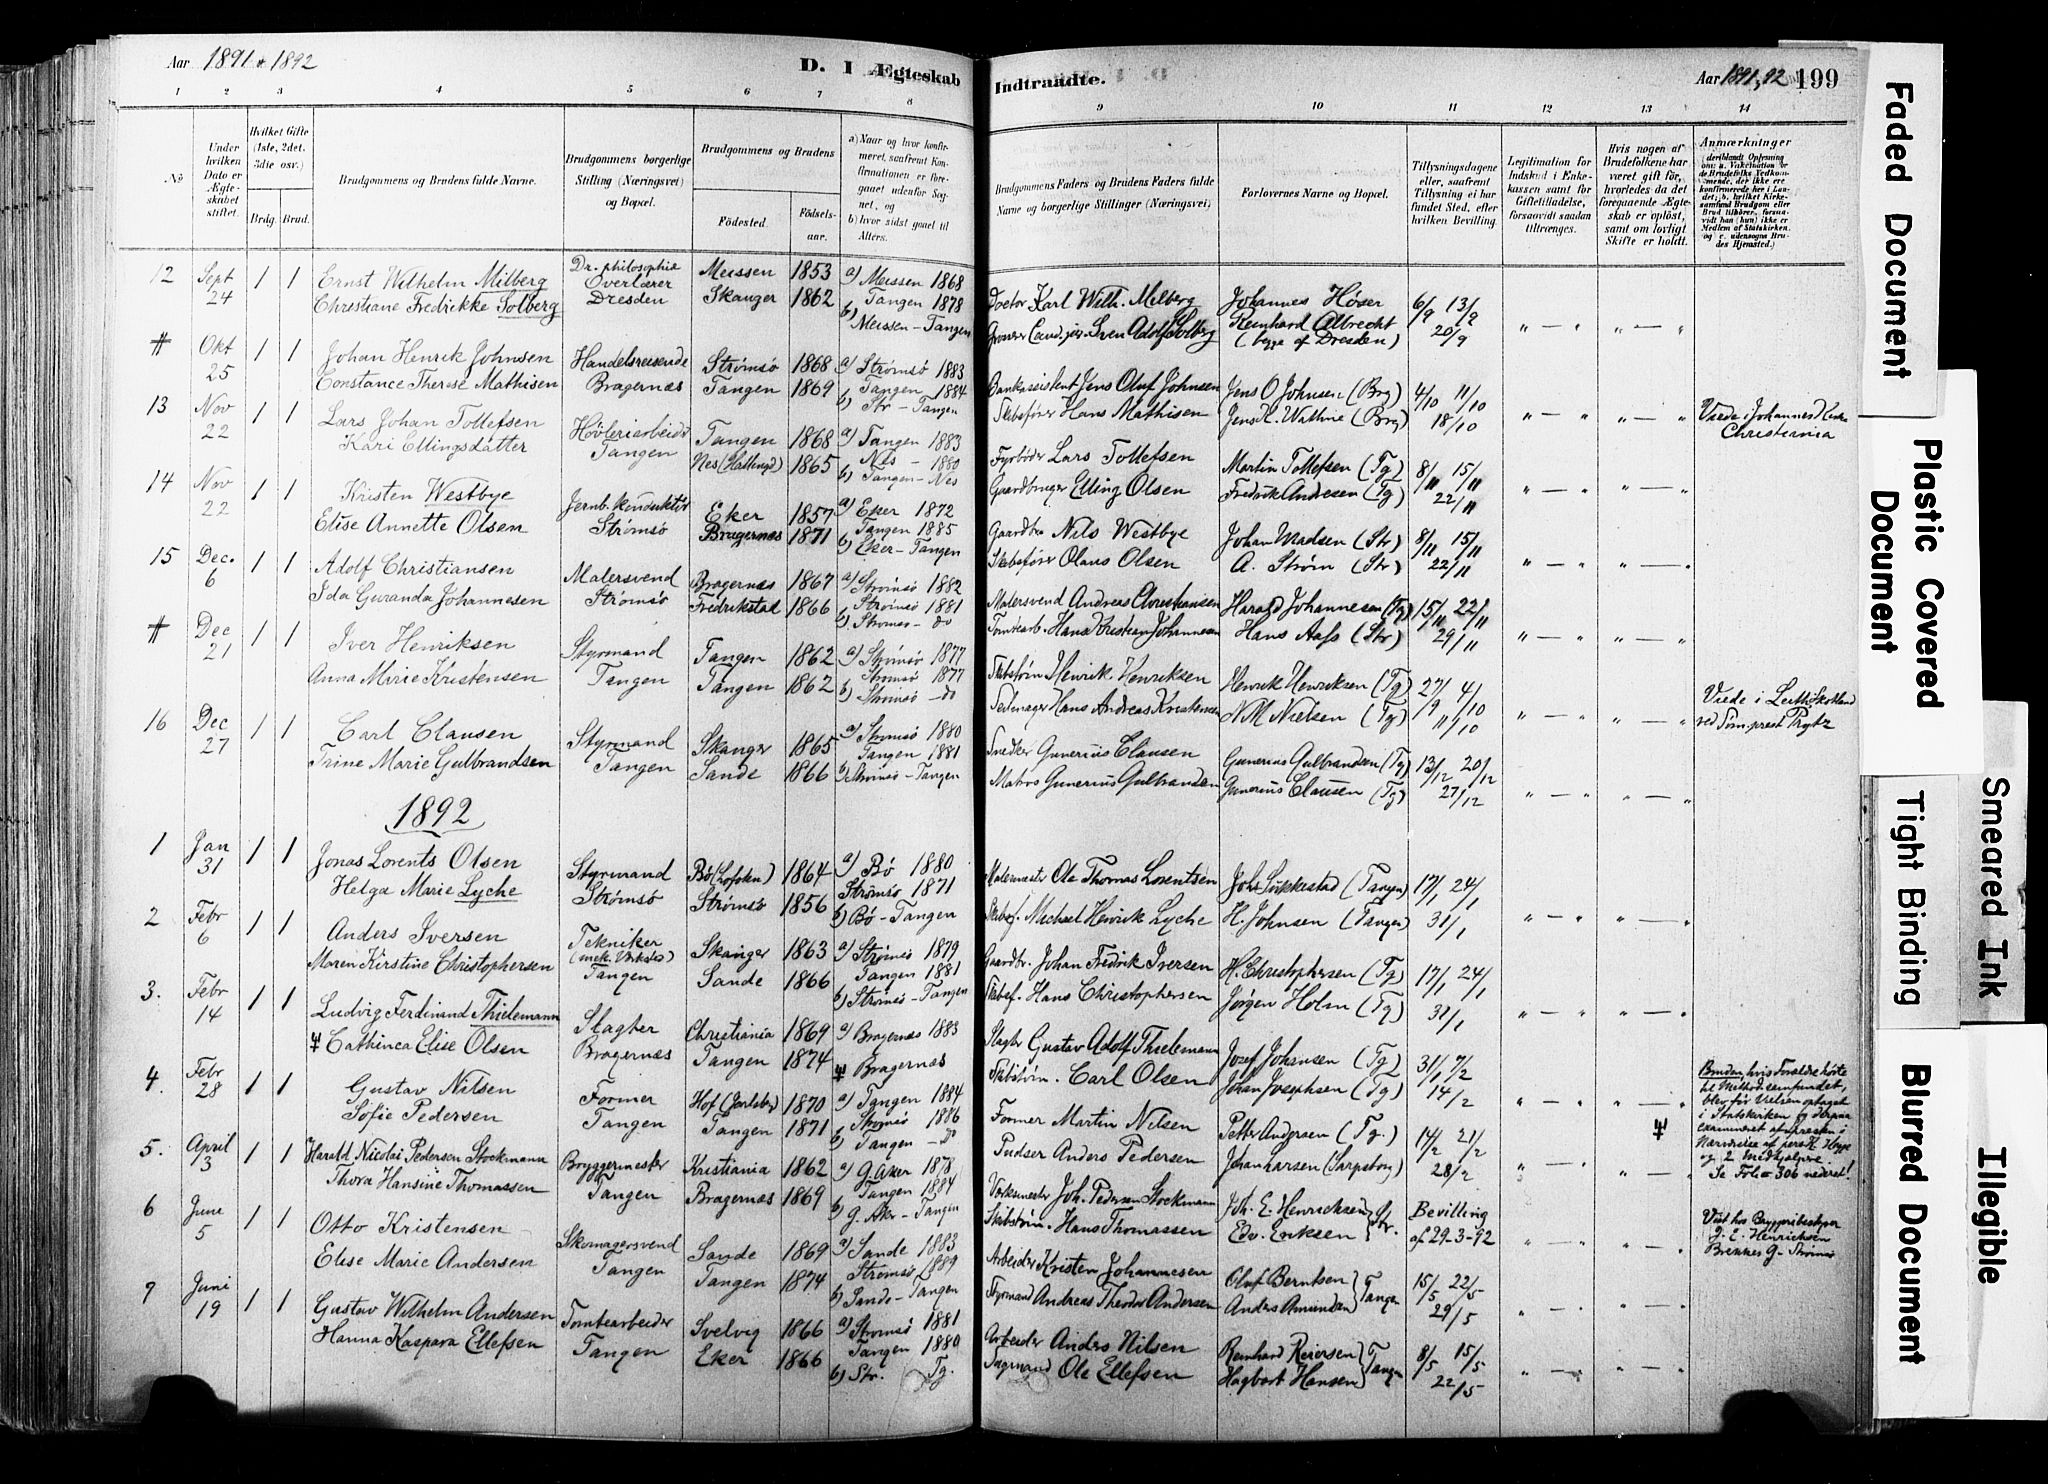 Aar 1891 & 1892
D. I Ægteskab
Indtraadte.
Aar 1891, 92 199
1 2 3 4 5 6 7 8 9 10 11 12 13 14
No
Under hvilken Dato er Ægteskabet stiftet.
Hvilket Gifte (1ste, 2det, 3die osv.)
Brdg. Brud.
Brudgommens og Brudens fulde Navne.
Brudgommens borgerlige Stilling (Næringsvei) og Bopæl.
Brudgommens og Brudens
Fødested. Fødselsaar.
a) Naar og hvor konfirmeret, saafremt Konfirmationen er foregaaet udenfor Sognet, og
b) hvor sidst gaaet til Alters.
Brudgommens Faders og Brudens Faders fulde Navne og borgerlige Stillinger (Næringsvei)
Forlovernes Navne og Bopæl.
Tillysningsdagene eller, saafremt Tillysning ei har fundet Sted, efter hvilken Bevilling.
Legitimation for Indskud i Enkekassen samt for Giftetilladelse, forsaavidt saadan tiltrænges.
Hvis nogen af Brudefolkene har været gift før, hvorledes da det foregaaende Ægteskab er opløst, samt om lovligt Skifte er holdt.
Anmærkninger
12 Sept 24 1 1 Ernst Wilhelm Milberg Dr. philosophiæ Overlærer Meissen 1853 a) Meissen 1868 Doctor Karl Wilh. Milberg Johannes Höser 6/9 13/9
Christiane Fredrikke Solberg Dresden Skanger 1862 Tangen 1878 b) Meissen - Tangen Sven Adolf Solberg Reinhard Albrecht (begge af Dresden) 20/9 " — " " — "
# Okt 25 1 1 Johan Henrik Johnsen Handelsreisende Strømsø 1868 a) Strømsø 1883 Bankassistent Jens Oluf Johnsen Jens O Johnsen (Brg) 4/10 11/10
Constance Therese Mathisen Bragernæs Tangen 1869 Tangen 1884 b) Str - Tangen Skibsfører Hans Mathisen Jens K. Wathne (Brg) 18/10 " — " " — " Viede i Johannes Kirke Christiania
13 Nov 22 1 1 Lars Johan Tollefsen Høvleriarbeider Tangen 1868 a) Tangen 1883 Fyrbøder Lars Tollefsen Martin Tollefsen (Tg) 8/11 15/11
Kari Ellingsdatter Tangen Nes (Hallingd) 1865 Nes - 1880 b) Tangen - Nes Gaardbruger Elling Olsen Fredrik Andresen (Tg) 22/11 " — " " — "
14 Nov 22 1 1 Kristen Westbye Jernb. konduktør Eker 1857 a) Eker 1872 Gaardbr Nils Westbye Johan Madsen (Str) 8/11 15/11
Elise Annette Olsen Strømsø Bragernæs 1871 Tangen 1885 b) Eker - Tangen Skibsfører Olaus Olsen A. Strøm (Str) 22/11 " — " " — "
15 Dec. 6 1 1 Adolf Christiansen Malersvend Bragernæs 1867 a) Strømsø 1882 Malersvend Andreas Christiansen Harald Johannesen (Tg) 15/11 22/11
Ida Guranda Johannesen Strømsø Fredrikstad 1866 Strømsø 1881 b) Strømsø - do Tomtearb. Hans Kristian Johannesen Hans Aass (Str) 29/11 " — " " — "
# Dec 21 1 1 Iver Henriksen Styrmand Tangen 1862 a) Strømsø 1877 Skibstøm Henrik Henriksen Henrik Henriksen (Tg) 27/9 4/10
Anna Marie Kristensen Tangen Tangen 1862 Strømsø 1877 b) Strømsø - do Hans Andreas Kristensen N M Nielsen (Tg) 11/10 " — " " — " Viede i Leith Skotland ved Søm.prest Prytz
16 Dec 27 1 1 Carl Clausen Styrmand Skanger 1865 a) Strømsø 1880 Snedker Gunerius Clausen Gunerius Gulbrandsen (Tg) 13/12 20/12
Trine Marie Gulbrandsen Tangen Sande 1866 Tangen 1881 b) Strømsø - Tangen Matros Gunerius Gulbrandsen Gunerius Clausen (Tg) 27/12 " — " " — "
1892
1 Jan 31 1 1 Jonas Lorents Olsen Styrmand Bø (Lofoten) 1864 a) Bø 1880 Malermester Ole Thomas Lorentsen Johs Sukkestad (Tangen) 17/1 24/1
Helga Marie Lyche Strømsø Strømsø 1856 Strømsø 1871 b) Bø - Tangen Skibsf. Michael Henrik Lyche H. Johnsen (Tangen) 31/1 " — " " — "
2 Febr 6 1 1 Anders Iversen Tekniker (mek. Verksted) Skanger 1863 a) Strømsø 1879 Gaardbr. Johan Fredrik Iversen H. Christophersen (Tg) 17/1 24/1
Maren Kirstine Christophersen Tangen Sande 1866 Tangen 1881 b) Strømsø - Tangen Skibsf. Hans Christophersen Jørgen Holm (Tg) 31/1 " — " " — "
3. Febr 14 1 1 Ludvig Ferdinand Thielemann Slagter Christiania 1869 a) Bragernæs 1883 Slagter Gustav Adolf Thielemann Josef Johansen (Tg) 31/1 7/2
Cathinca Elise Olsen Bragernæs Tangen 1874 Bragernæs Skibstøm. Carl Olsen Johan Josephsen (Tg) 14/2 " — " " — " Bruden, hvis Forældre hørte til Methodsamfundet, blev før Vielsen optaget i Statskirken og derpaa examineret af presten i Nærværelse af og 2 Medhjælpere. Se Fol. 306 nederst!
4. Febr 28 1 1 Gustav Nilsen Former Hof (Jarlsberg) 1870 a) Tangen 1884 Former Martin Nilsen Petter Andersen (Tg.) 14/2 21/2
Sofie Pedersen Tangen Tangen 1871 Strømsø 1886 b) Tangen - Do Pudser Anders Pedersen Johan Larsen (Sarpsborg) 28/2 " — " " — "
5. April 3 1 1 Harald Nicolai Pedersen Stockmann Bryggermester Kristiania 1862 a) G. Aker 1878 Verksmester Joh. Pedersen Stockmann Joh. E. Henrichsen } Str. Bevilling
Thora Hansine Thomassen Tangen Bragernæs 1869 Tangen 1884 b) G. Aker - Tangen Skibstøm. Hans Thomassen Edv. Eriksen af 29-3-92 " — " " — " Viet hos Bryggeribestyrer J. E. Henrichsen Brekkes G. Strømsø
6 Juni 5 1 1 Otto Kristensen Skomagersvend Sande 1869 a) Sande 1883 Arbeider Kristen Johannesen Oluf Berntsen } Tangen 15/5 22/5
Elise Marie Andersen Tangen Tangen 1874 Strømsø 1889 b) Sande - Tangen Styrmand Andreas Theodor Andersen Anders Amundsen 29/5 " — " " — "
7 Juni 19 1 1 Gustav Wilhelm Andersen Tomtearbeider Svelvig 1866 a) Strømsø 1881 Arbeider Anders Nilsen Reinhard Reiersen } Tangen 8/5 15/5
Hanna Kaspara Ellefsen Tangen Eker 1866 Tangen 1880 b) Str. Tg. Sagmand Ole Ellefsen Hagbart Hansen 22/5 " — " " — "
Faded Document
Plastic Covered Document
Tight Binding
Smeared Ink
Blurred Document
Illegible